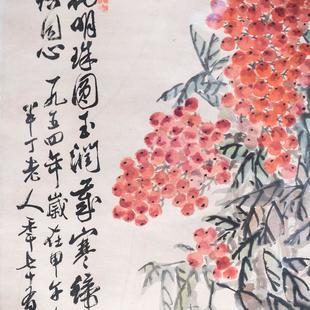 明珠圓玉潤寒綠
心一九五四年歲在甲午
半丁老人年七十有